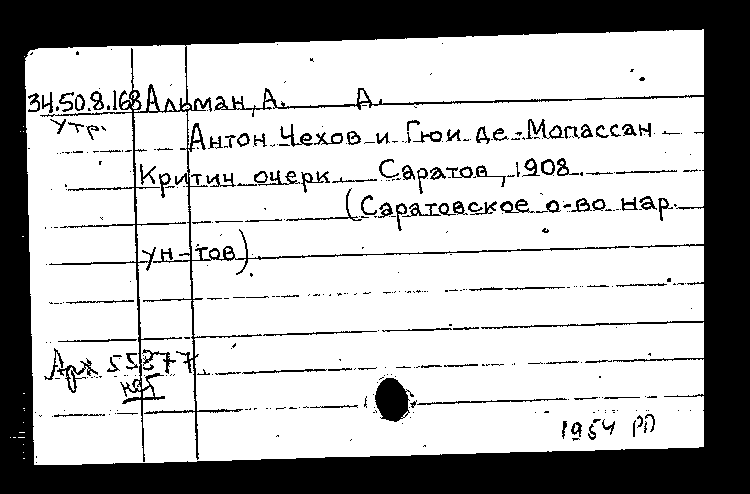 34.50.8.168 Альман, А. А.
Утр.
Антон Чехов и Гюи де-Мопассан
Критич. очерк. Саратов, 1908.
(Саратовское о-во нар.
ун-тов).
Арх 55877.
1964 РП